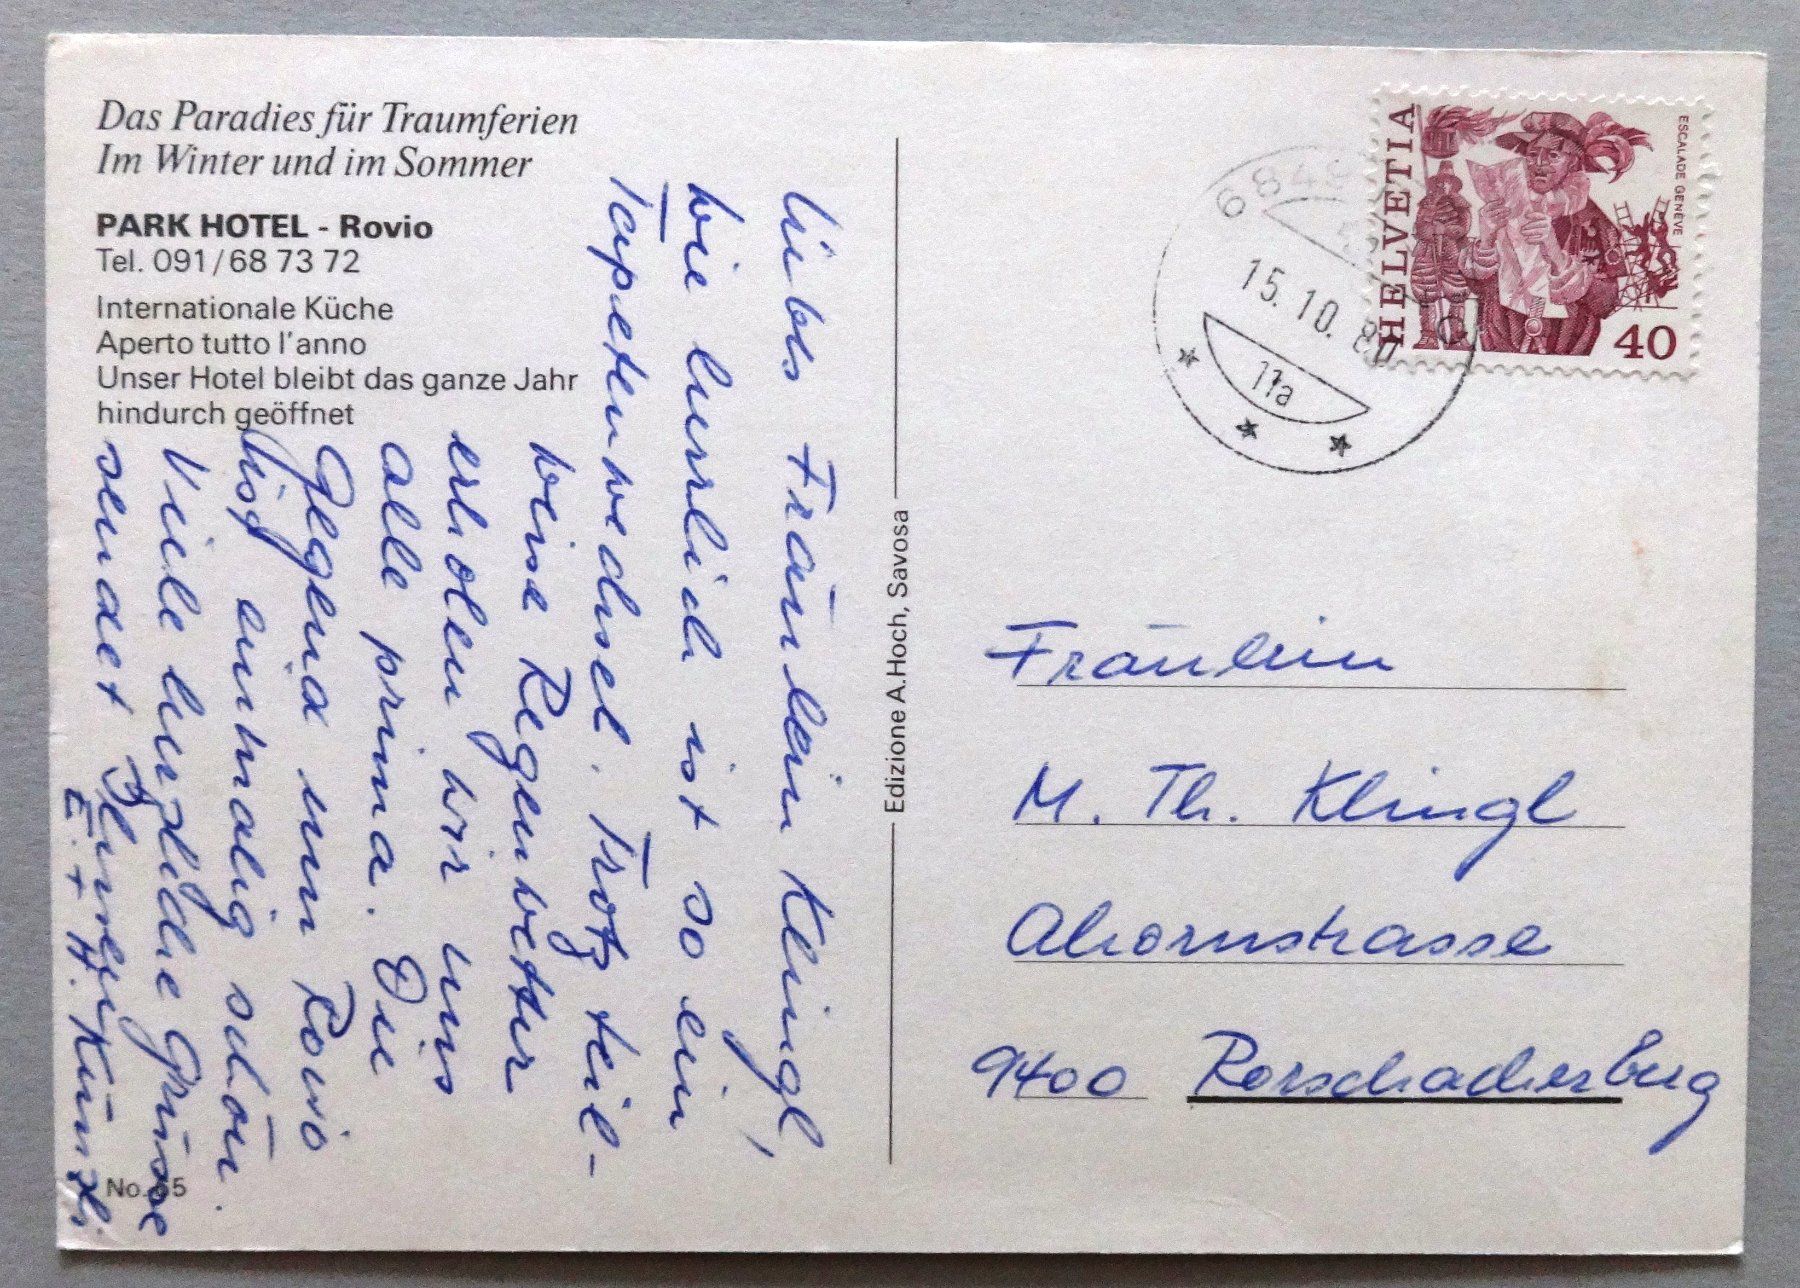 Das Paradies für Traumferien
Im Winter und im Sommer
PARK HOTEL - Rovio
Tel. 091/68 73 72
Internationale Küche
Aperto tutto l'anno
Unser Hotel bleibt das ganze Jahr
hindurch geöffnet
Liebes Fräulein Klingl,
wie herrlich ist so ein
Tapetenwechsel. Trotz teil-
weise Regenwetter
erholen wir uns
alle prima. Die
Gegend um Rovio
ist einmalig schön.
Viele herzliche Grüsse
sendet
E. + H. Künzli
No. 65
Edizione A. Hoch, Savosa
HELVETIA
ESCALADE GENÈVE
40
15.10.80
11a
Fräulein
M. Th. Klingl
Ahornstrasse
9400 Rorschacherberg